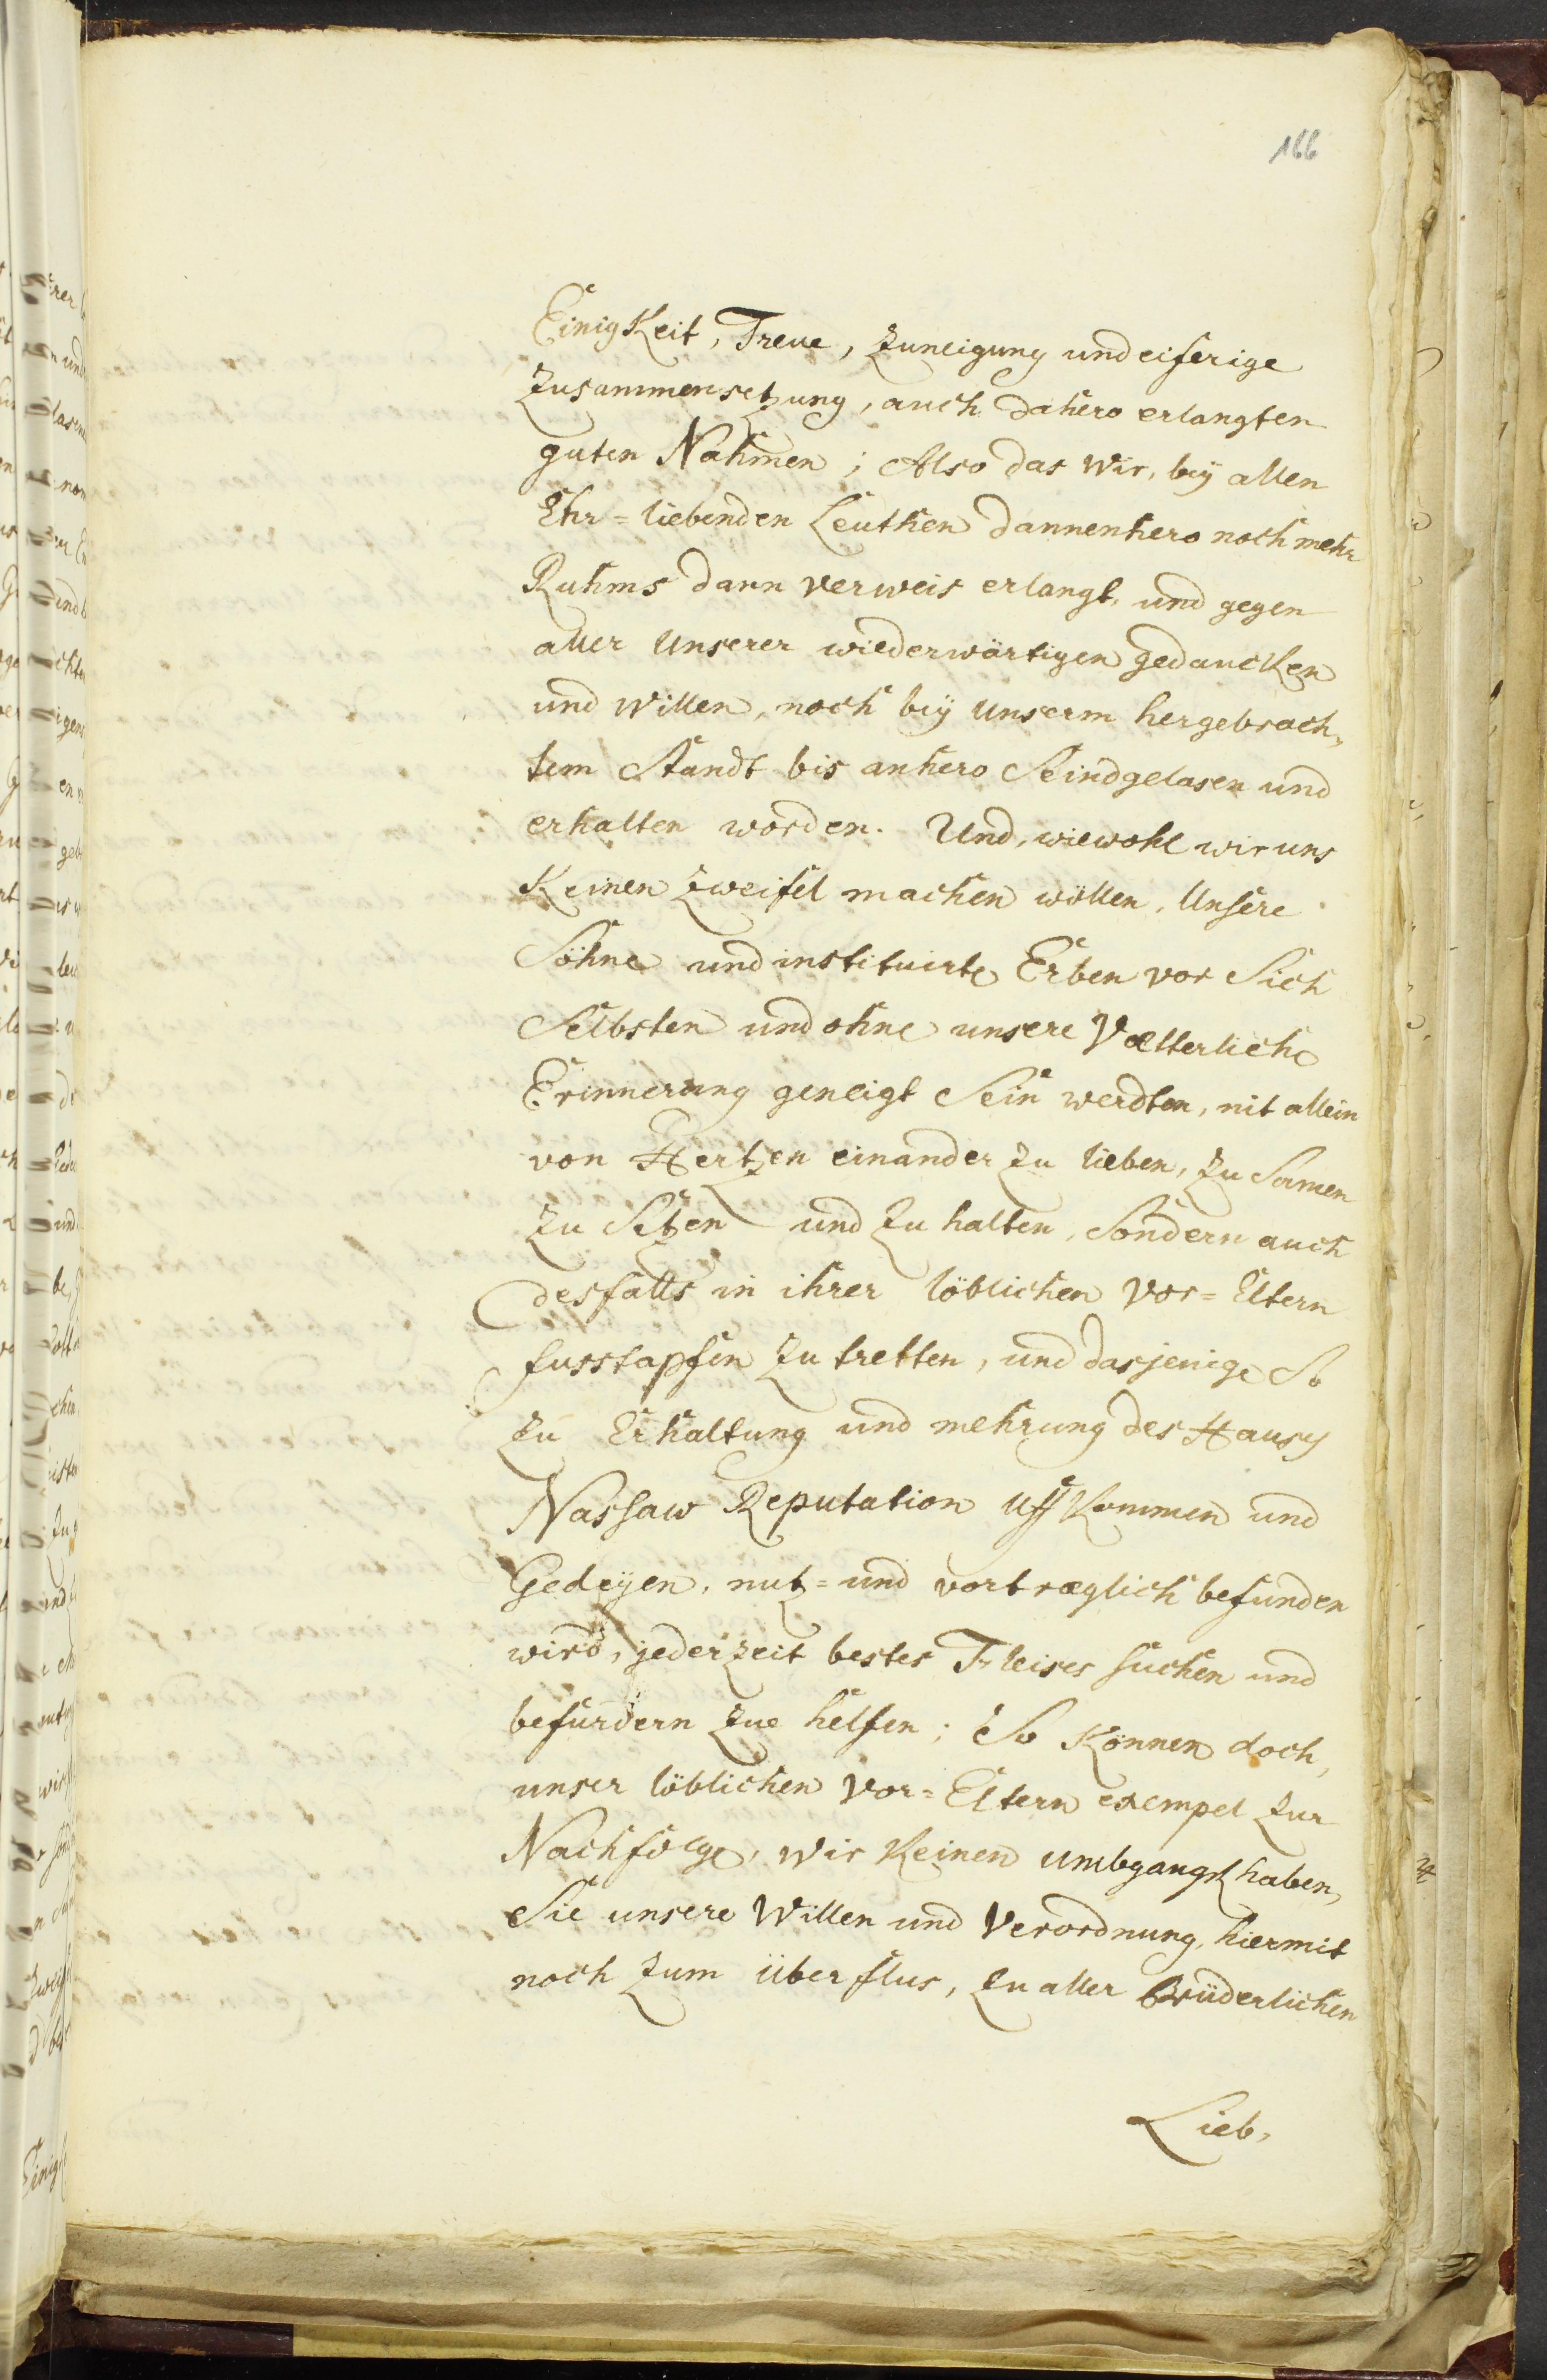 166
EinigKeit, Treue, Zuneigung und eiferige
Zusammensetzung, auch dahero erlangten
guten Nahmen; Also das Wir, bey allen
Ehr=liebenden Leuthen dannenhero noch mehr
Ruhms dann verweis erlangt, und gegen
aller Unserer wiederwärtigen gedancken
und Willen, noch bey Unserm hergebrach,
tem Standt bis anhero Seind gelasen und
erhalten worden. Und, wiewohl wir uns
Keinen Zweifel machen wöllen, Unsere
Söhne und instituirte Erben vor Sich
Selbsten und ohne unsere Vætterliche
Erinnerung geneigt Sein werdten, nit allein
von Hertzen einander zu lieben, zu Samen
zu Setzen und zu halten, Sondern auch
desfalls in ihrer löblichen Vor=Eltern
fusstapfen zu tretten, und dasjenige So
zu Erhaltung und mehrung des Hausz
Nassaw Reputation uff Kommen und
Gedeyen, nutz= und vortræglich befunden
wird, jederzeit bestes Fleises suchen und
befürdern zue helfen; So Können doch,
unser löblichen Vor=Eltern exempel zur
Nachfolge, Wir Keinen umbgangk haben,
Sie unsere Willen und Verordnung, hiermit
noch zum überflus, zu aller Brüderlichen
Lieb,